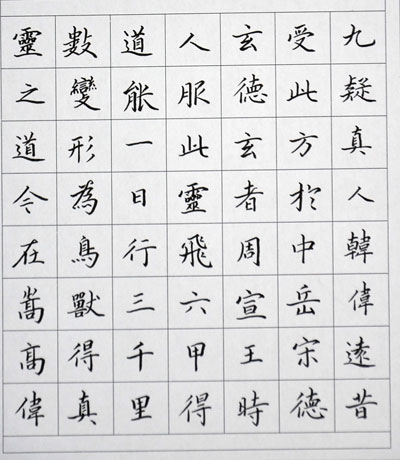 九疑真人韓偉遠昔
受此方於中岳宋德
玄德玄者周宣王時
人服此靈飛六甲得
道能一日行三千里
數變形為鳥獸得真
靈之道今在嵩高偉